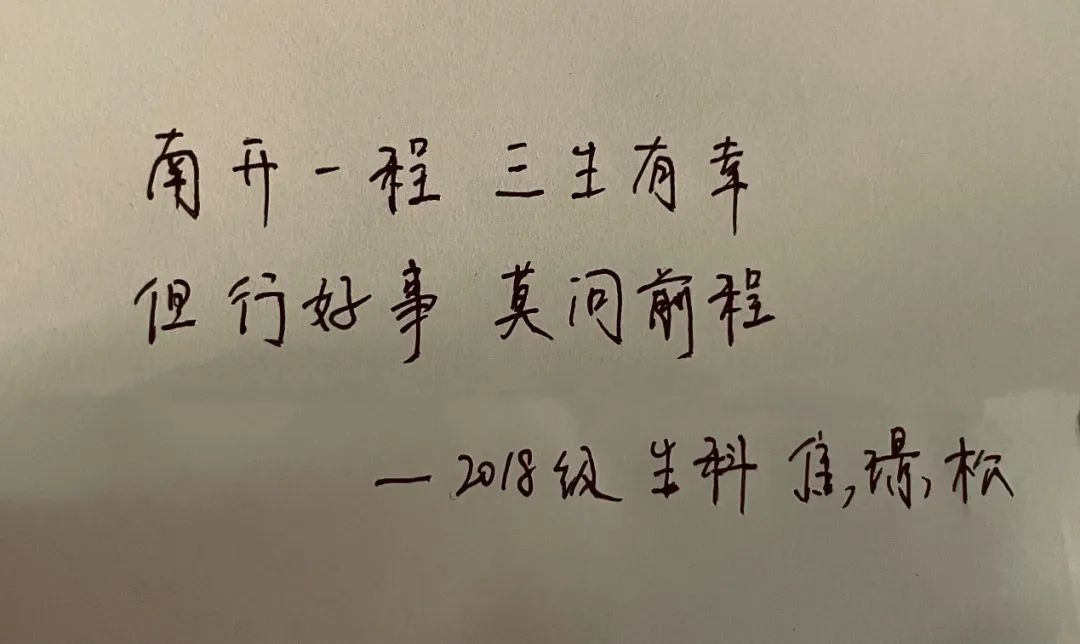 南开一程 三生有幸
但行好事 莫问前程
—2018级 生科 焦璟松